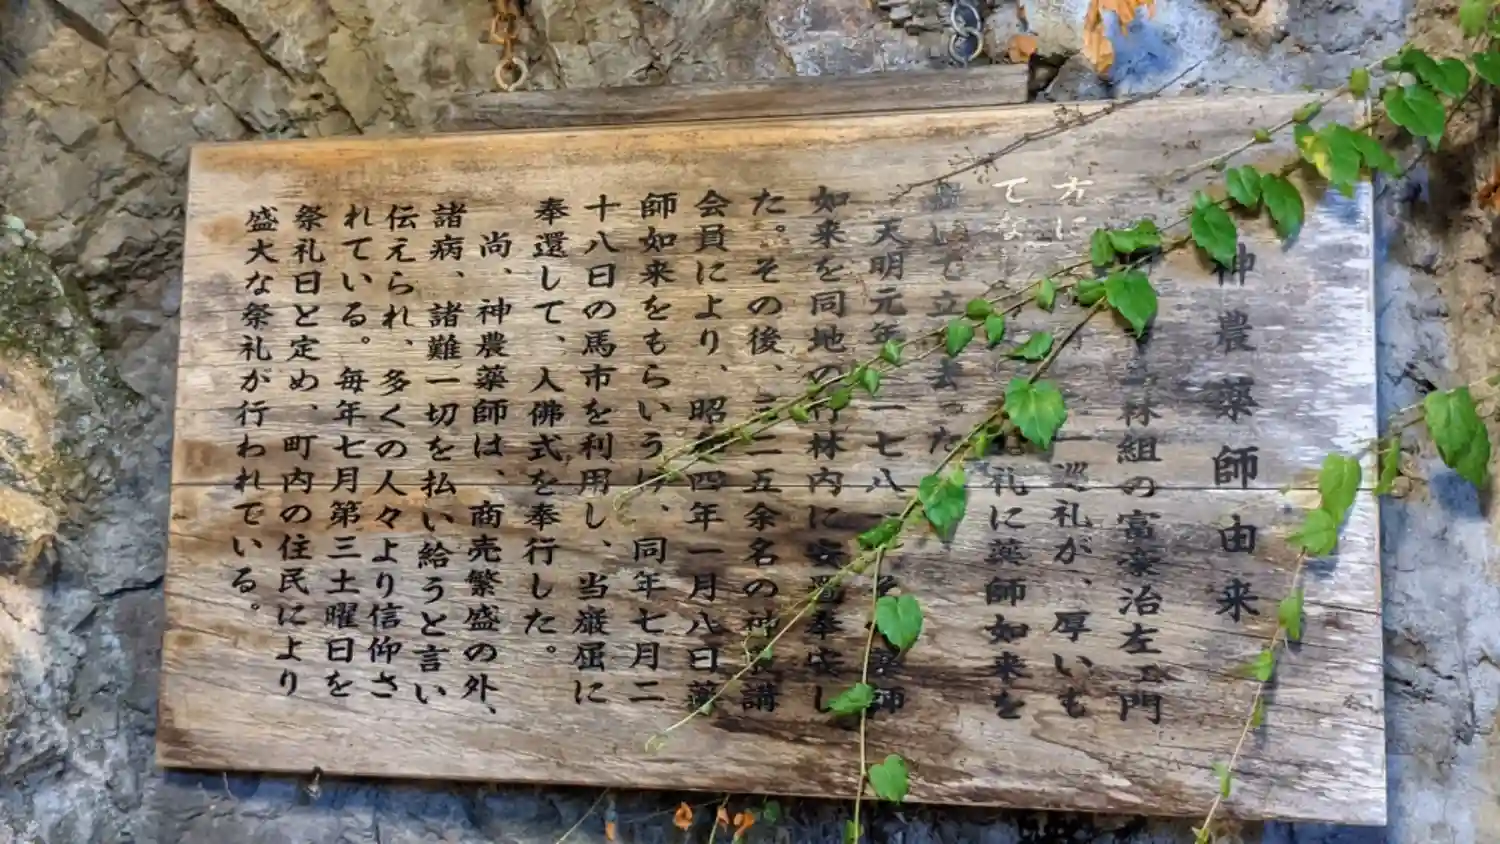 神農薬師由来
林組の富豪治左エ門
方に 巡礼が、厚いも
てな 礼に薬師如来を
いて立 去った
天明元年 一七八 師
如来を同地の竹林内に安置奉安し
た。その後、二五余名の神 講
会員により、昭 四年一月八日薬
師如来をもらいうけ、同年七月二
十八日の馬市を利用し、当巌屈に
奉還して、入佛式を奉行した。
尚、神農薬師は、商売繁盛の外、
諸病、諸難一切を払い給うと言い
伝えられ、多くの人々より信仰さ
れている。毎年七月第三土曜日を
祭礼日と定め、町内の住民により
盛大な祭礼が行われている。